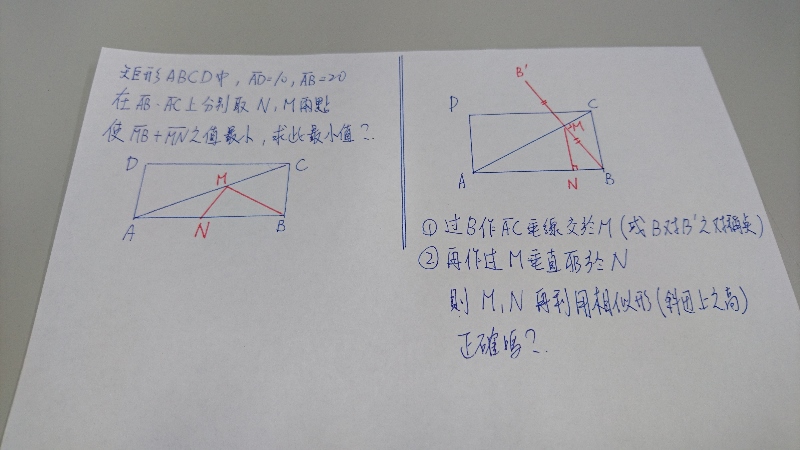 矩形ABCD中, AD=10, AB=20
在AB、AC上分別取N,M兩點
使MB+MN之值最小,求此最小值?
D
C
M
A
N
B
B'
D
C
M
A
N
B
① 过B作AC垂線交於M(或B对B'之对稱点)
② 再作过M垂直AB於N
則M,N再利用相似形(斜边上之高)
正確嗎?